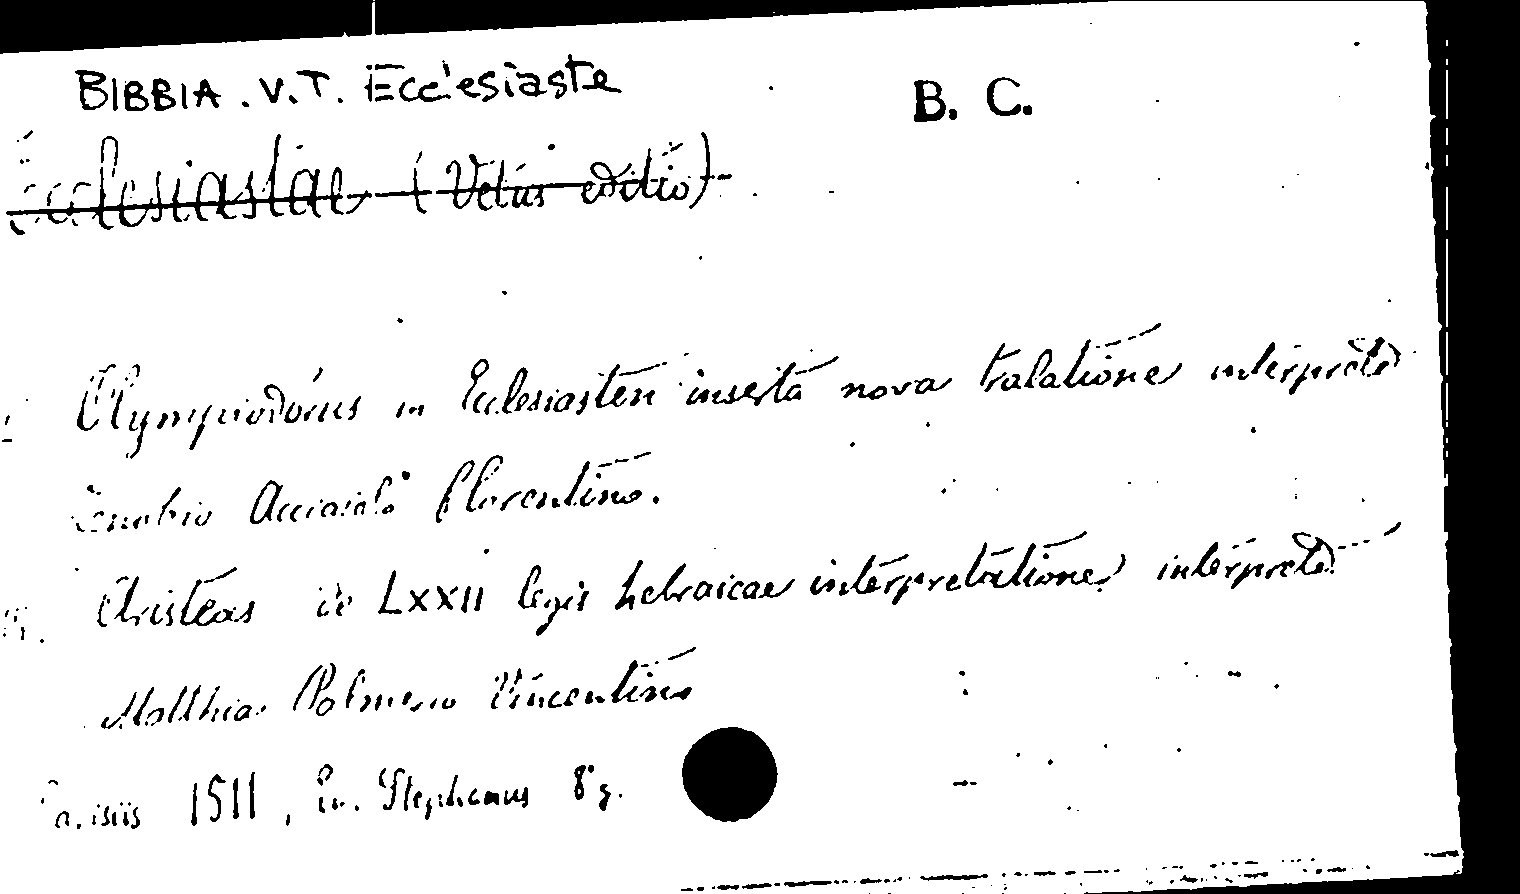 BIBBIA. V.T. Ecclesiaste
B. C.
Ecclesiastae (Vetus editio)
Olympiodorus in Ecclesiasten inserta nova tralatione interprete
Zenobio Acciaiolo Florentino.
Aristeas de LXXII legis hebraicae interpretatione interprete
Matthia Palmerio Vincentino
Parisiis 1511, Stephanus 8°